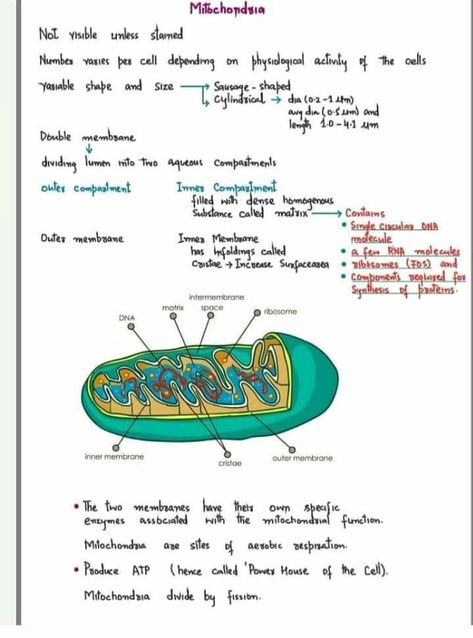 Mitochondria
Not visible unless stained
Number varies per cell depending on physiological activity of the cells
Variable shape and size → Sausage-shaped
↳ Cylindrical → dia (0.2-1 μm)
avg dia (0.5 μm) and
length 1.0-4.1 μm
Double membrane
↓
dividing lumen into two aqueous compartments
outer compartment
Inner Compartment
filled with dense homogenous
Substance called matrix → Contains
• Single circular DNA
molecule
• a few RNA molecules
• ribosomes (70S) and
• Components required for
Synthesis of proteins.
Outer membrane
Inner Membrane
has infoldings called
Cristae → Increase Surfacearea
intermembrane
space
matrix
ribosome
DNA
inner membrane
cristae
outer membrane
• The two membranes have their own specific
enzymes associated with the mitochondrial function.
Mitochondria are sites of aerobic respiration.
• Produce ATP (hence called 'Power House of the Cell).
Mitochondria divide by fission.